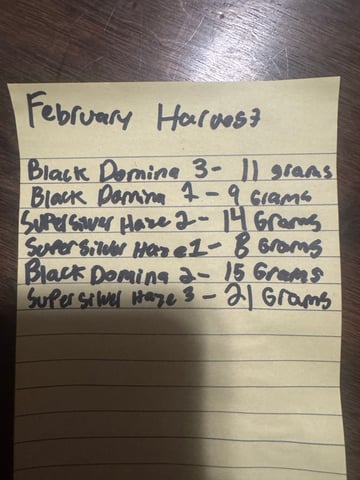 February Harvest
Black Domina 3- 11 grams
Black Domina 1- 9 Grams
Super Silver Haze 2- 14 Grams
Super Silver Haze 1- 8 Grams
Black Domina 2- 15 Grams
Super Silver Haze 3 - 21 Grams